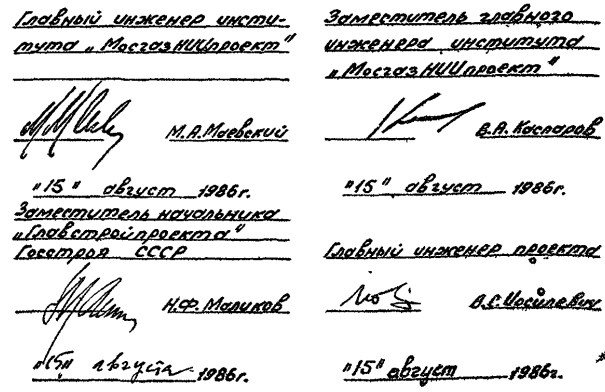 Главный инженер инсти-
тута „Мосгаз НИИпроект"
М.А. Маевский
"15" август 1986г.
Заместитель начальника
„Главстройпроекта"
Госстроя СССР
Н.Ф. Маликов
"15" августа 1986г.
Заместитель главного
инженера института
„Мосгаз НИИпроект"
В.А. Каспаров
"15" август 1986г.
Главный инженер проекта
В.С. Иосилевич
"15" август 1986г.